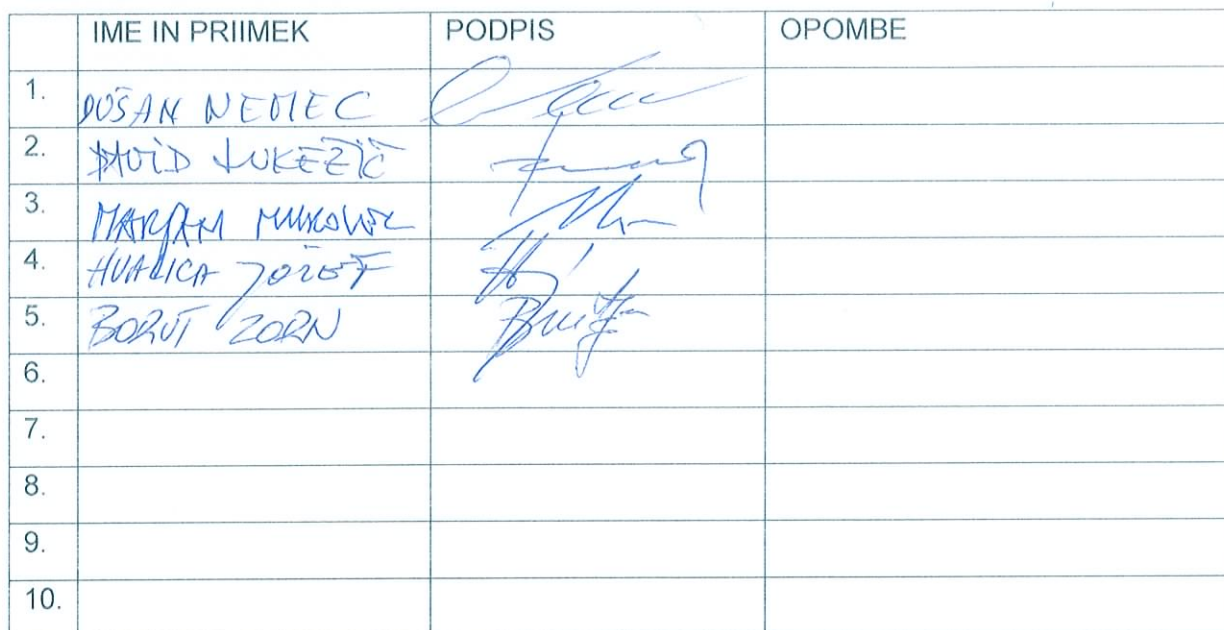 IME IN PRIIMEK PODPIS OPOMBE
1. DUŠAN NEMEC
2. DAVID LUKEŽIČ
3. MARJAN
4. HVALICA JOŽEF
5. BORUT ZORN
6.
7.
8.
9.
10.